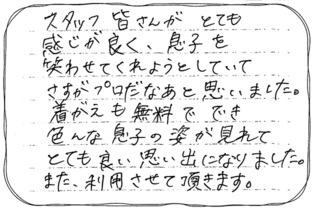 スタッフ皆さんが とても
感じが良く、息子を
笑わせてくれようとしていて
さすがプロだなあと思いました。
着がえも無料で でき
色んな息子の姿が見れて
とても良い思い出になりました。
また、利用させて頂きます。